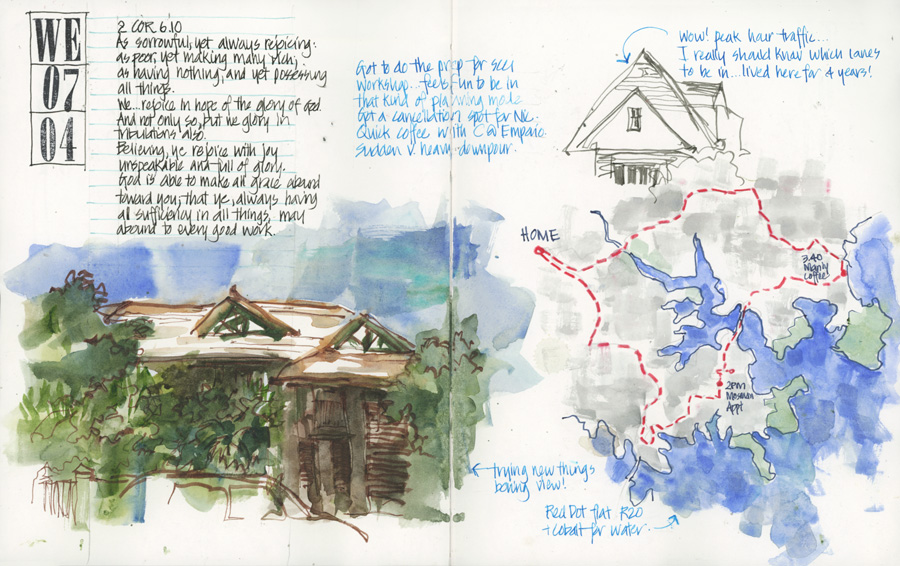 WE
07
04
2 COR 6.10
As sorrowful, yet always rejoicing:
as poor, yet making many rich;
as having nothing, and yet possessing
all things.
We... rejoice in hope of the glory of God.
And not only so, but we glory in
tribulations also.
Believing, ye rejoice with joy
unspeakable and full of glory.
God is able to make all grace abound
toward you; that ye, always having
all sufficiency in all things, may
abound to every good work.
Got to do the prep for
workshop... feels fun to be in
that kind of planning mode
Got a cancellation spot for Nic.
Quick coffee with C @ Emporio.
Sudden v. heavy downpour.
Wow! peak hour traffic...
I really should know which lanes
to be in... lived here for 4 years!
HOME
3.40
Manly
Coffee
2pm
Mosman
Appt
trying new things
boring view!
Red Dot flat R20
+ cobalt for water.